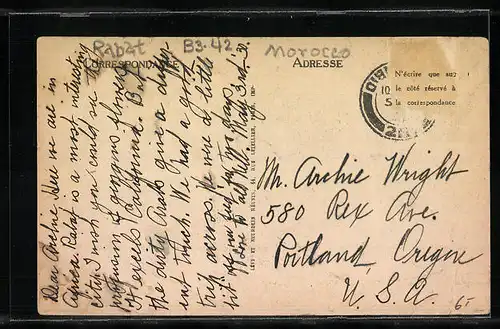 Rabat B3-42 Morocco
CORRESPONDANCE
ADRESSE
N'écrire que sur
le côté réservé à
la correspondance
Dear Archie. Here we are in
Africa. Rabat is a most interesting
city. I wish you could see the
profusion of gorgeous flowers.
It excels California. But
the dirty Arabs give a differ-
ent touch. We had a good
trip across. We were a little
bit off our feed for two days.
Love to all Nell. May 3rd
LÉVY ET NEURDEIN RÉUNIS, 44, RUE LETELLIER, PARIS, IMP.
Mr. Archie Wright
580 Rex Ave.
Portland, Oregon
U. S. A.